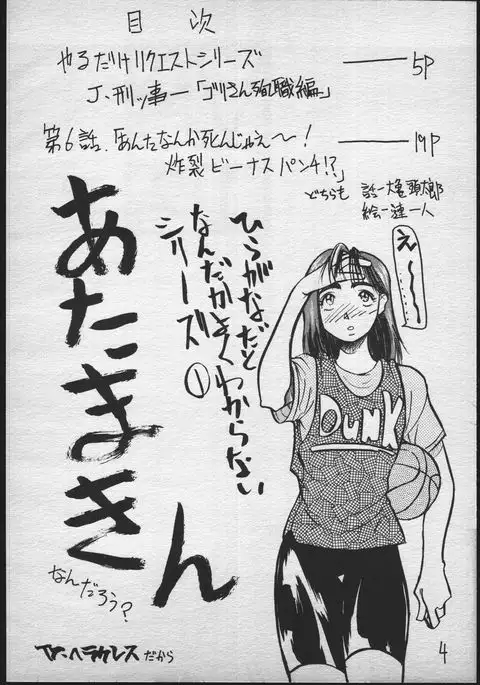 目次
やるだけリクエストシリーズ ——— 5P
J・刑ッ事ー「ゴリさん殉職編」
第6話、「あんたなんか死んじゃえ〜! ——— 19P
炸裂ビーナスパンチ!?」
どちらも 話ー大亀頭太郎
絵ー漣一人
え〜〜
ひらがなだと
なんだかよくわからない
シリーズ①
あたまきん
なんだろう?
Tr.ヘラクレスだから
DUNK
4